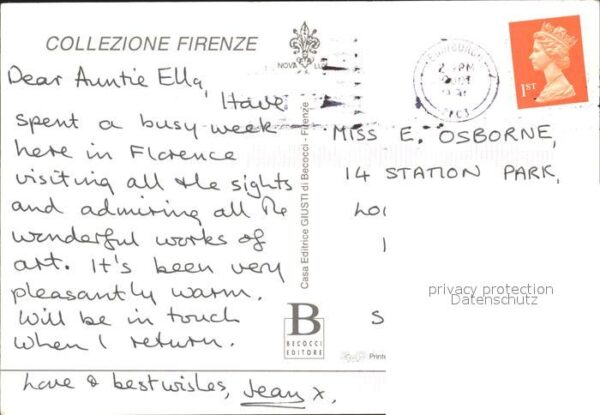 COLLEZIONE FIRENZE
NOVA LUX
Dear Auntie Ella,
Have
spent a busy week
here in Florence
visiting all the sights
and admiring all the
wonderful works of
art. It's been very
pleasantly warm.
Will be in touch
when I return.
Love & best wishes, Jean x,
Casa Editrice GIUSTI di Becocci - Firenze
B
BECOCCI
EDITORE
Printe
EDINBURGH
PM
1ST
MISS E. OSBORNE,
14 STATION PARK,
LO
S
privacy protection
Datenschutz